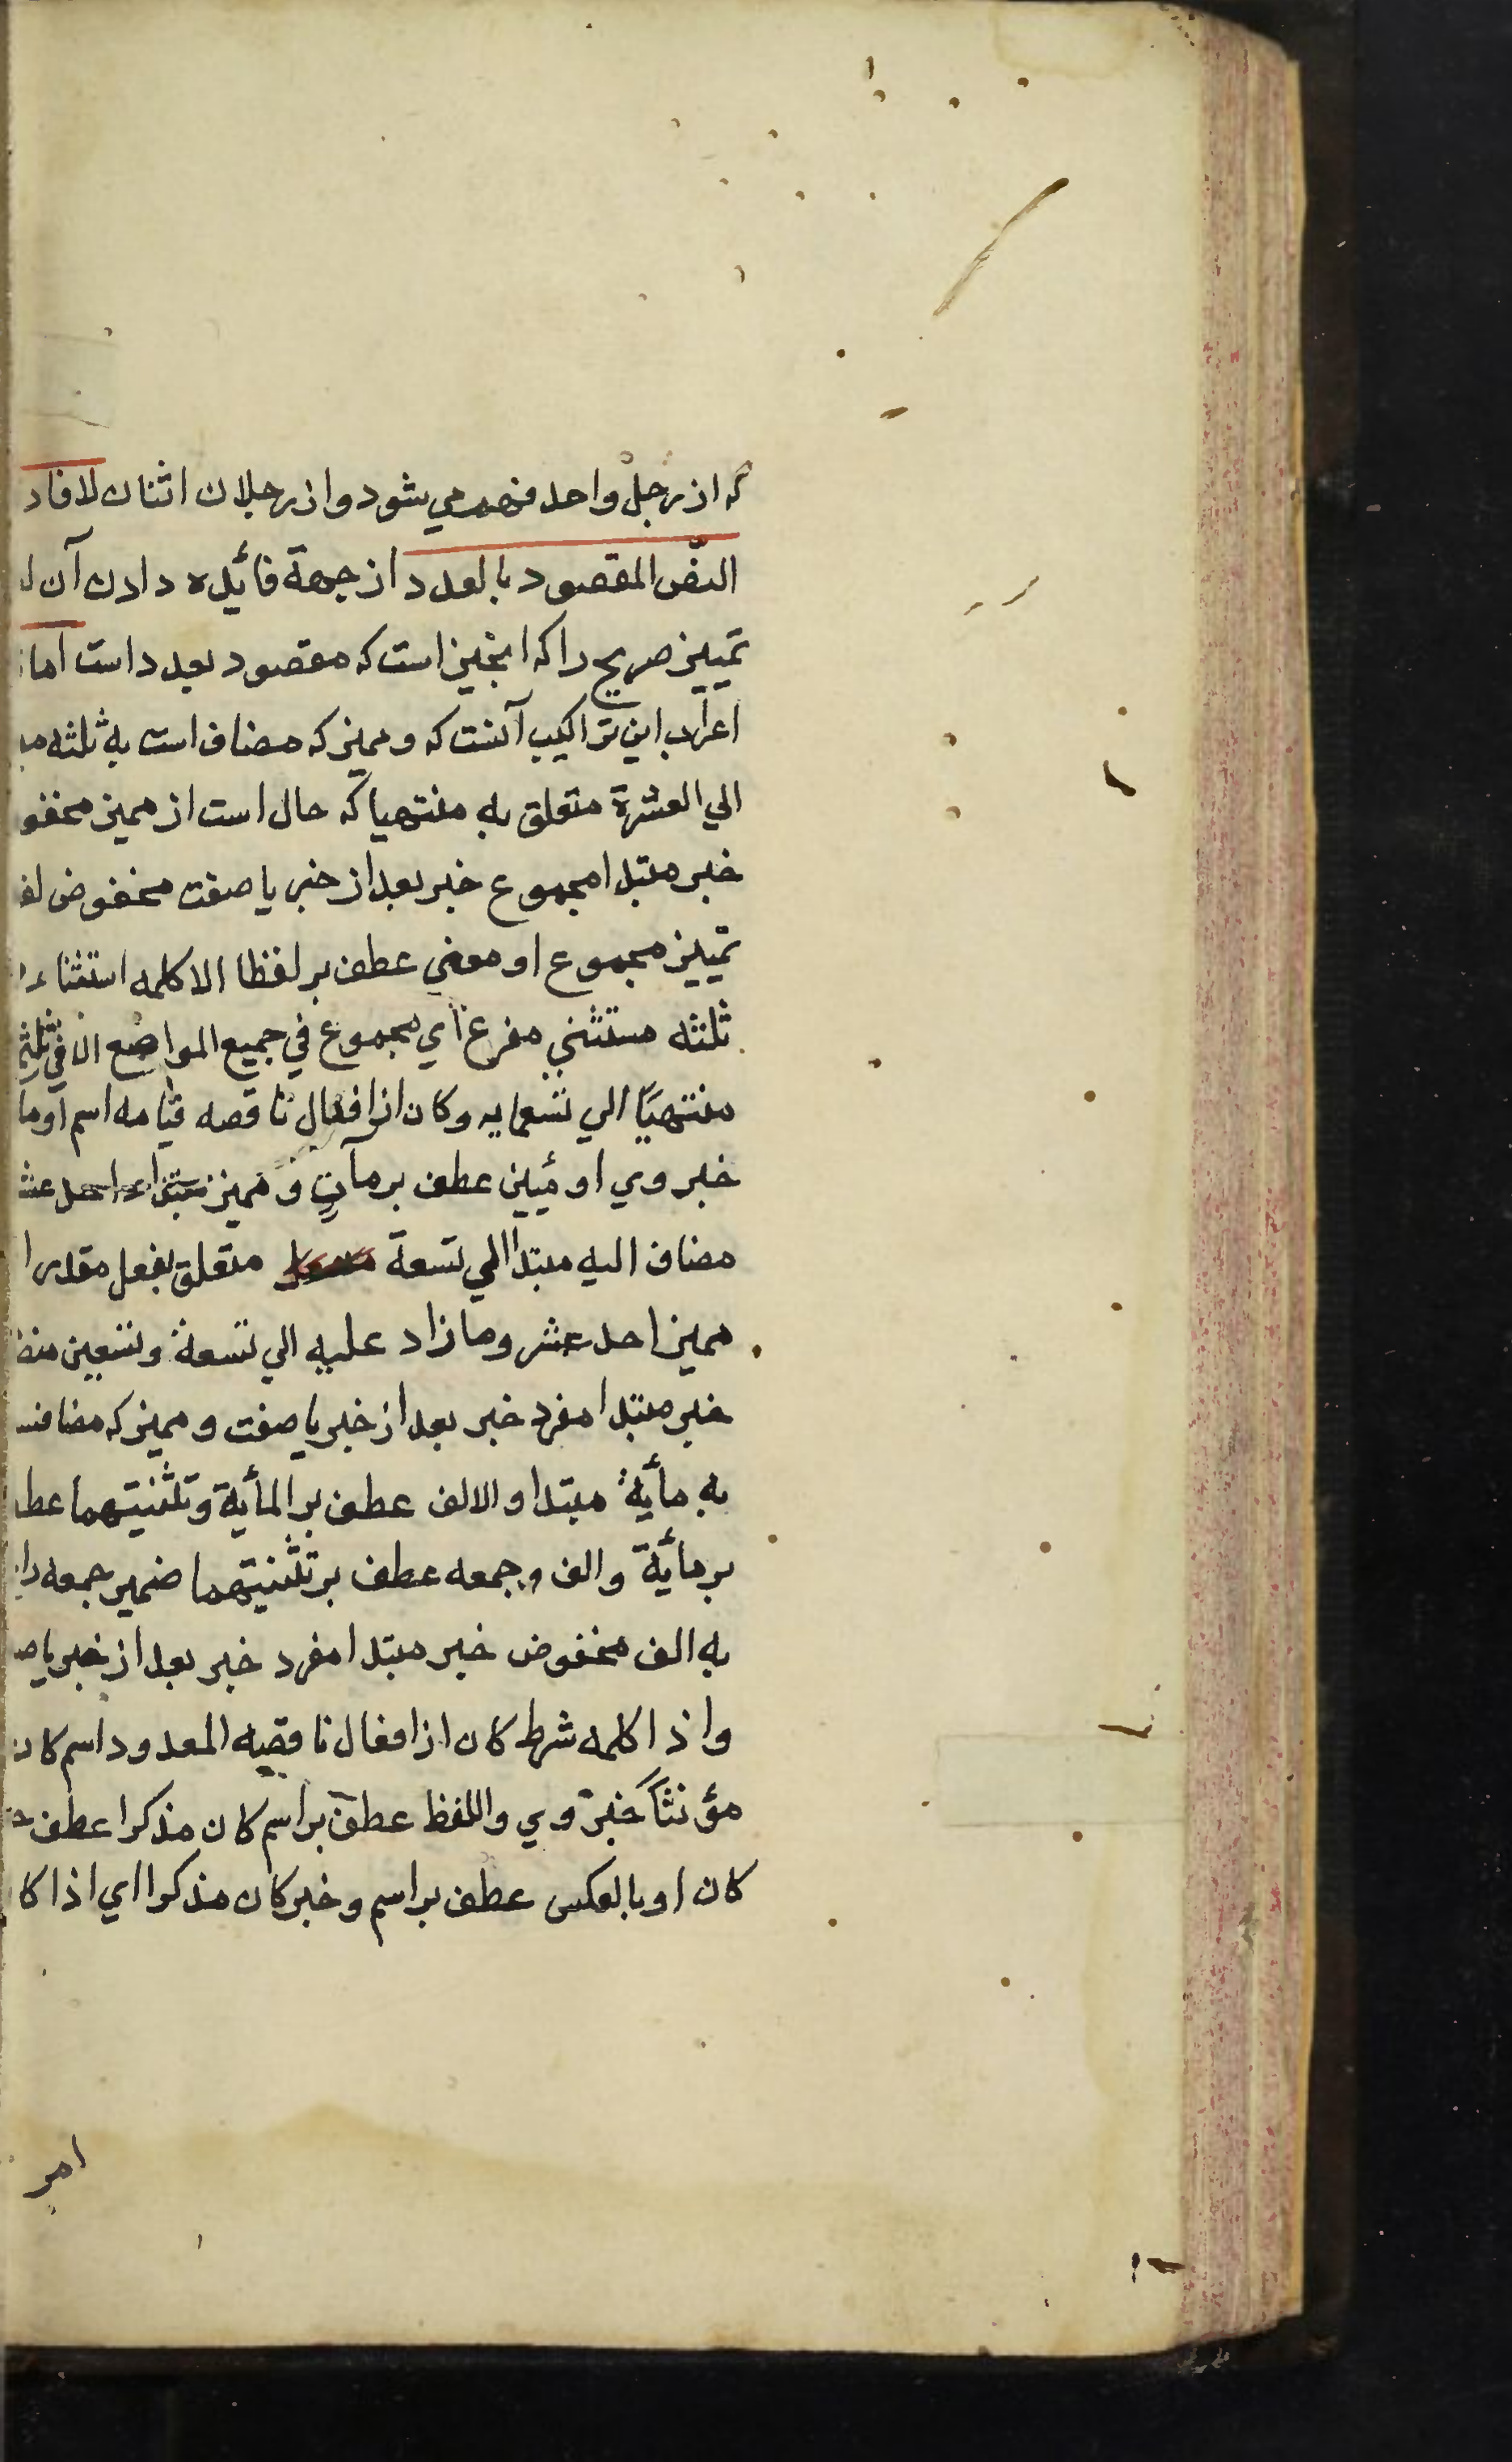 که از رجل واحد فهم می شود و از رجلان اثنان لافاد
النصّ المقصود بالعدد از جهة فائیده دادن آن
تمییز صریح را که اینچنین است که مقصود بعدد است اما
اعراب این تراکیب آنست که و ممیز که مضاف است به ثلثه
الی العشرة متعلق به منتهیا که حال است از ممیز مخفو
خبر مبتدا مجموع خبر بعد از خبر یا صفت مخفوض لف
تمییز مجموع او معنی عطف بر لفظا الا کلمه استثناء
ثلثه مستثنی مفرغ ای مجموع فی جمیع المواضع الا فی ثلث
منتهیًا الی تسعمایه و کان از افعال ناقصه قیامه اسم او ما
خبر وی او مئین عطف بر مآتٍ و ممیز مبتدا احد عش
مضاف الیه مبتدا الی تسعة متعلق بفعل مقدر ا
ممیز احد عشر و ما زاد علیه الی تسعة و تسعین
خبر مبتدا مفرد خبر بعد از خبر یا صفت و ممیز که مضافست
به مأیة مبتدا و الالف عطف بر المأیة و تثنیتهما عط
بر مأیة و الف و جمعه عطف بر تثنیتهما ضمیر جمعه را
به الف مخفوض خبر مبتدا مفرد خبر بعد از خبر یا ص
و اذا کلمه شرط کان از افعال ناقصه المعدود اسم کان
مؤنثاً خبر وی و اللفظ عطف بر اسم کان مذکرا عطف
کان او بالعکس عطف بر اسم و خبر کان مذکرا ای اذا کا
امر